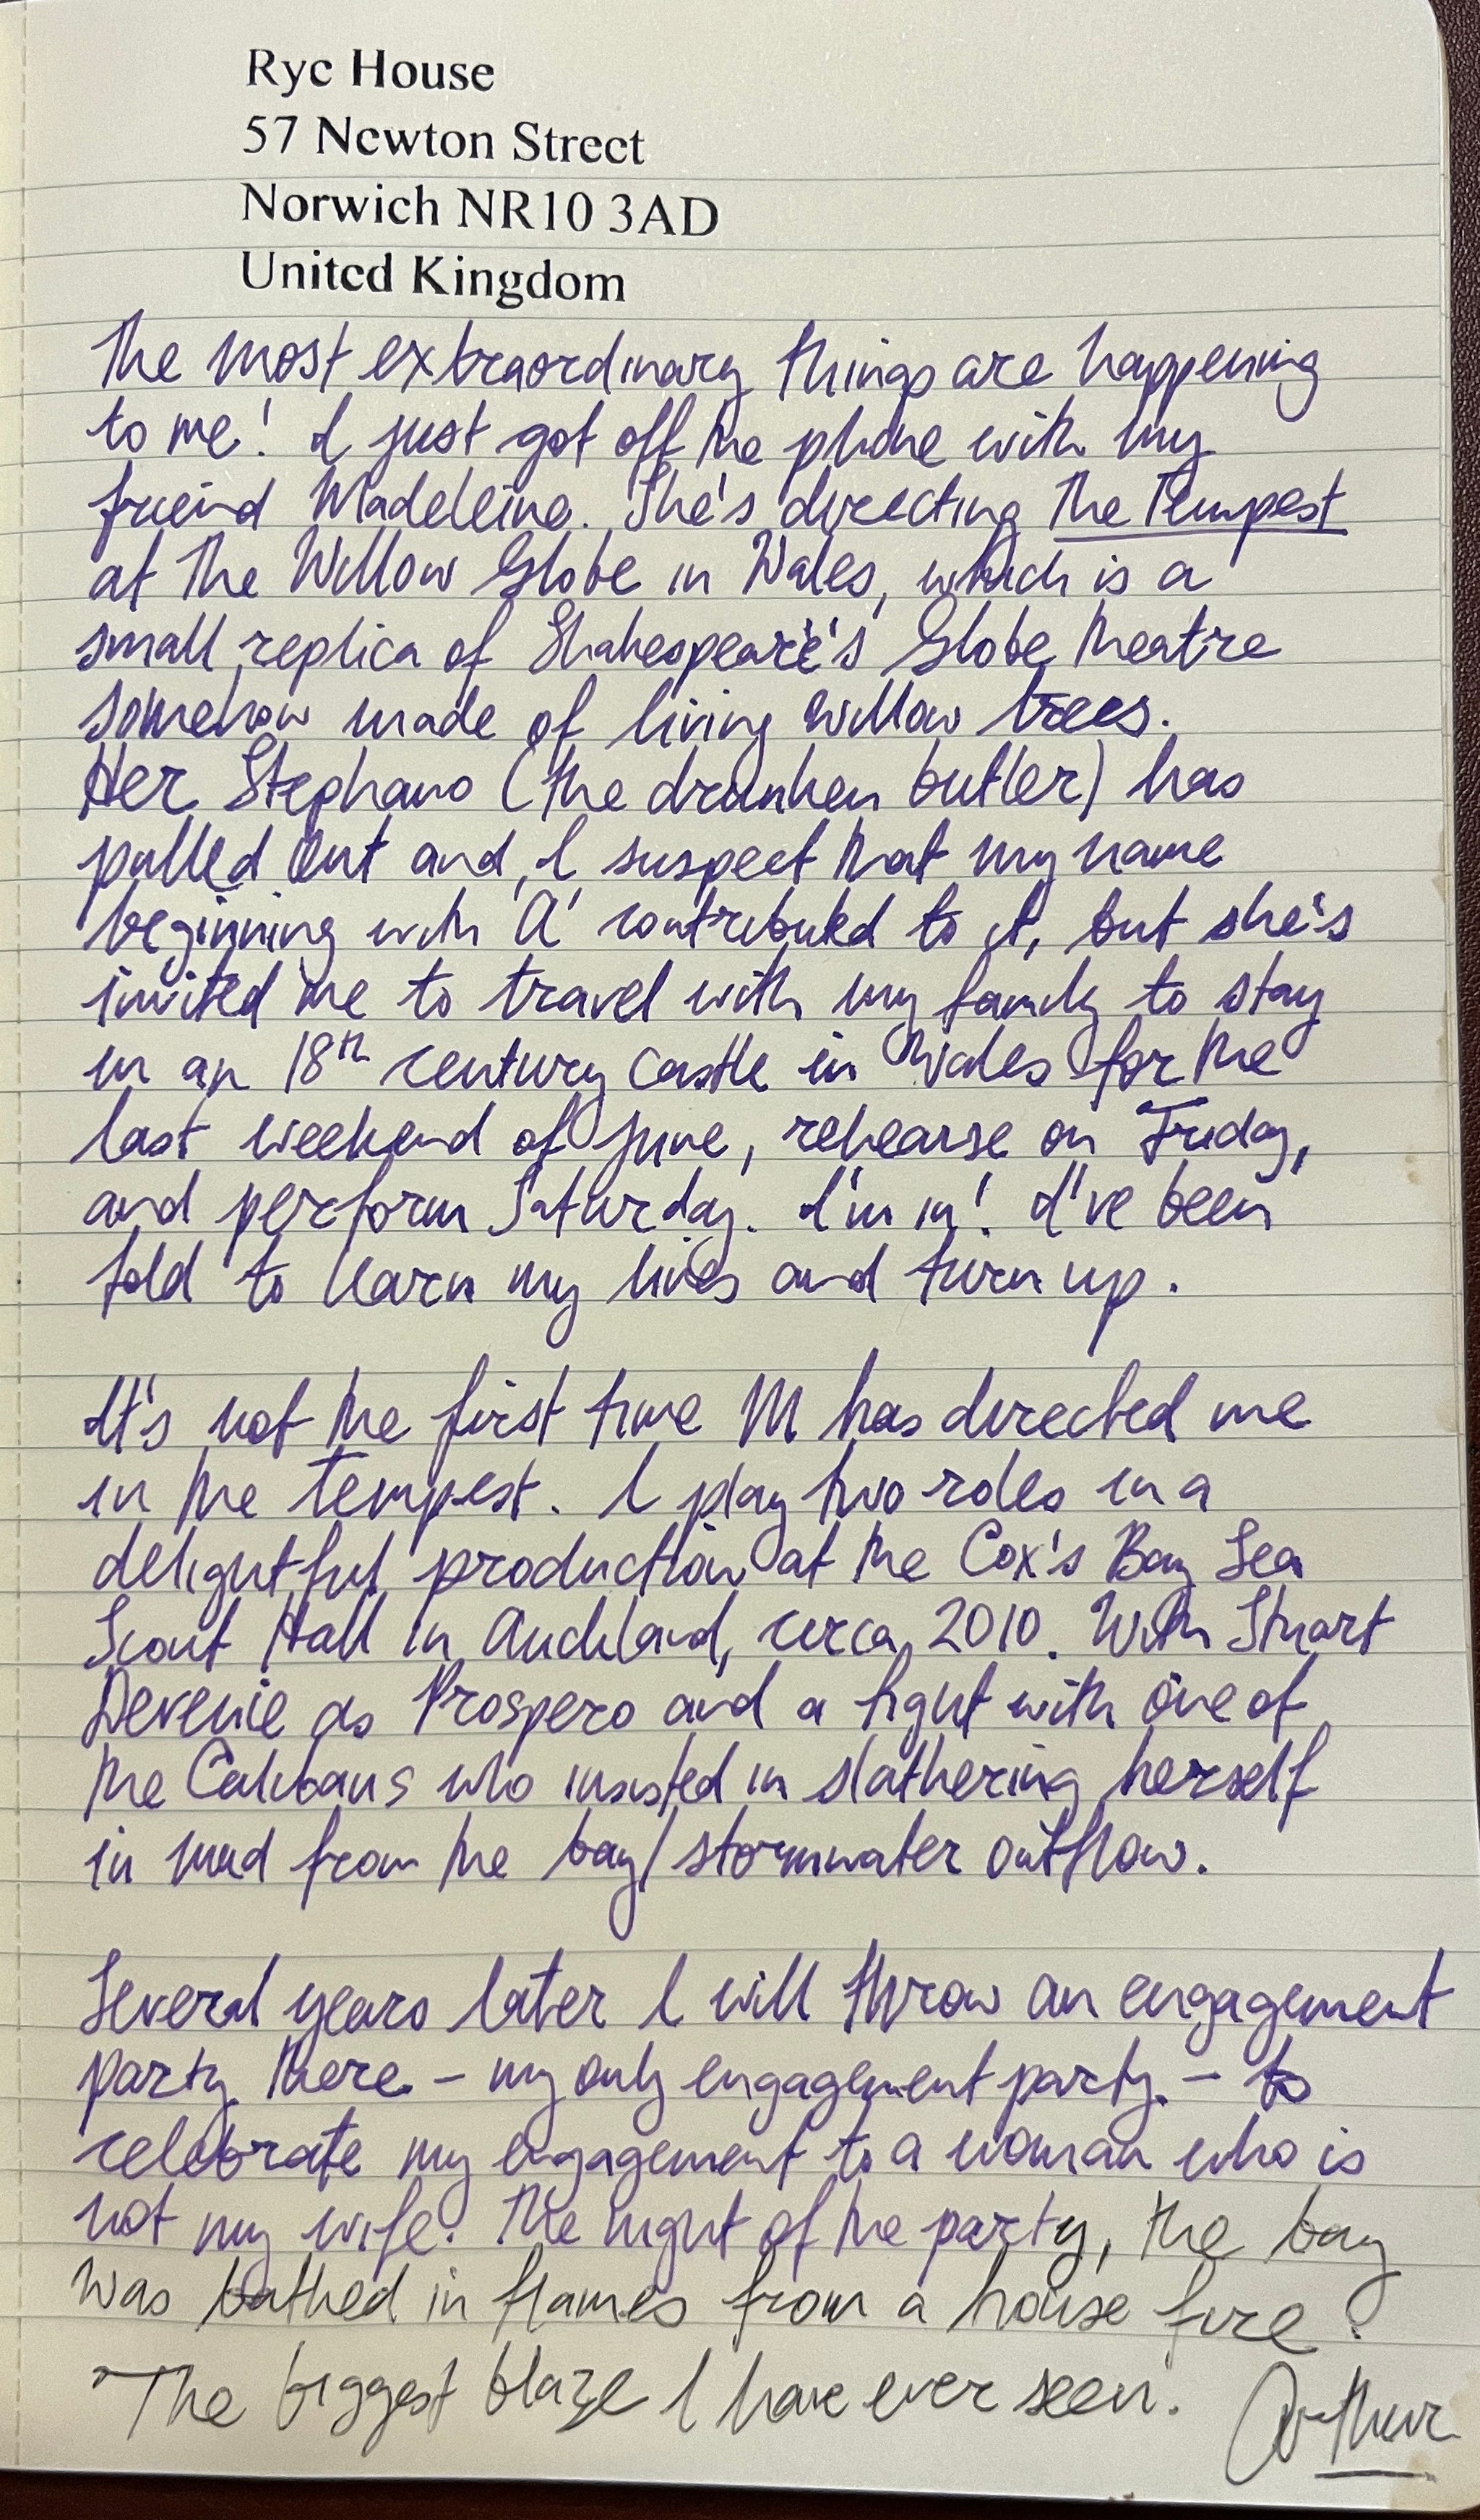 Rye House
57 Newton Street
Norwich NR10 3AD
United Kingdom
The most extraordinary things are happening
to me! I just got off the phone with my
friend Madeleine. She's directing The Tempest
at the Willow Globe in Wales, which is a
small replica of Shakespeare's Globe Theatre
somehow made of living willow trees.
Her Stephano (the drunken butler) has
pulled out and, I suspect that my name
beginning with 'A' contributed to it, but she's
invited me to travel with my family to stay
in an 18th century castle in Wales for the
last weekend of June, rehearse on Friday,
and perform Saturday. I'm in! I've been
told to learn my lines and turn up.
It's not the first time M has directed me
in the tempest. I play two roles in a
delightful production at the Cox's Bay Sea
Scout Hall in Auckland, circa 2010. With Stuart
Devenie as Prospero and a fight with one of
the Calibans who insisted in slathering herself
in mud from the bay/stormwater outflow.
Several years later I will throw an engagement
party there - my only engagement party. - to
celebrate my engagement to a woman who is
not my wife. The night of the party, the bay
was bathed in flames from a house fire.
The biggest blaze I have ever seen.
Arthur